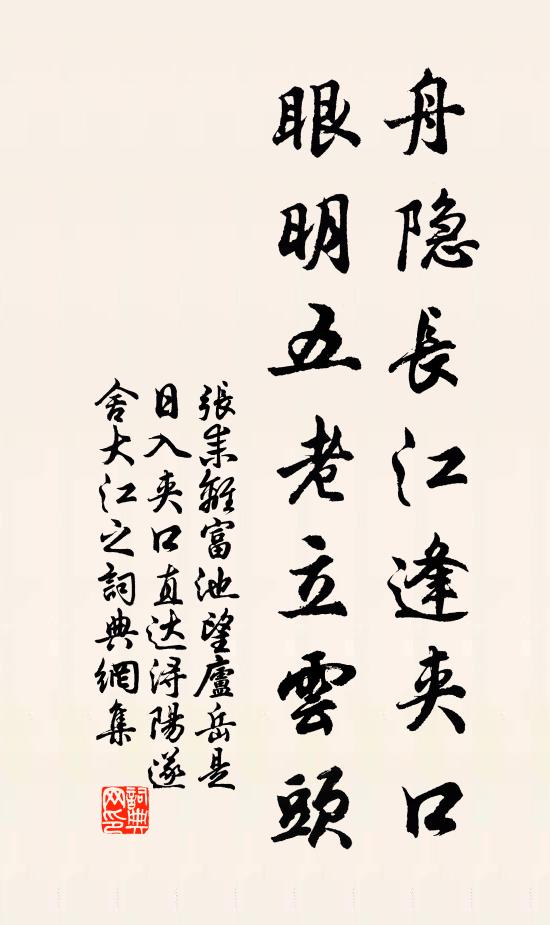 舟隐長江逢夾口
眼明五老立雲頭
張耒離富池望廬岳是
日入夾口直达浔陽遂
舍大江之詞典網集
詞典
网印